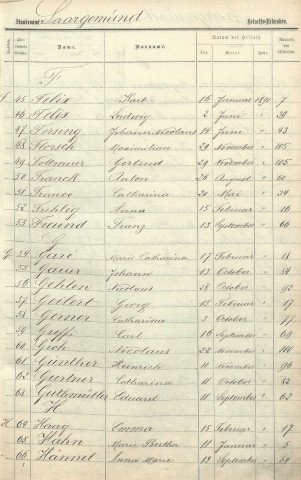 Standesamt Saargemünd Heiraths-Urkunden
Name. Vorname. Datum der Heirath
Monat Jahr
F
45 Felix Karl 16 Januar 1891 7
46 Felix Ludwig 2 Juni " 39
47 Johann Nicolaus 19 Juni " 43
48 Florsch Maximilian 29 November " 105
49 Gertrud 29 November " 105
50 Franck Anton 26 August " 60
51 France Catharina 20 Mai " 34
52 Anna 15 Februar " 16
53 Freund Franz 13 September " 60
G
G 54 Gare Marie Catharina 17 Februar " 18
55 Gauer Johann 13 October " 84
56 Gehlen Nicolaus 28 October " 93
57 Georg 15 Februar " 17
58 Gerner Catharina 3 October " 77
59 Carl 16 September " 69
60 Groh Nicolaus 22 November " 100
61 Günther Heinrich 11 November " 96
62 Gürtner Catharina 11 October " 82
63 Guthmüller Eduard 11 September " 62
H
H 64 Haag Emma 15 Februar " 17
65 Hahn Marie Bertha 11 Januar " 5
66 Hännel Anna Marie 19 September " 64